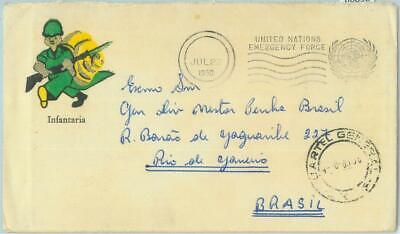 UNITED NATIONS
EMERGENCY FORCE
JUL 22
Infantaria
Exmo Snr
Gen Div Nestor Penha Brasil
R. Barão de Jaguaribe 227
Rio de Janeiro
BRASIL